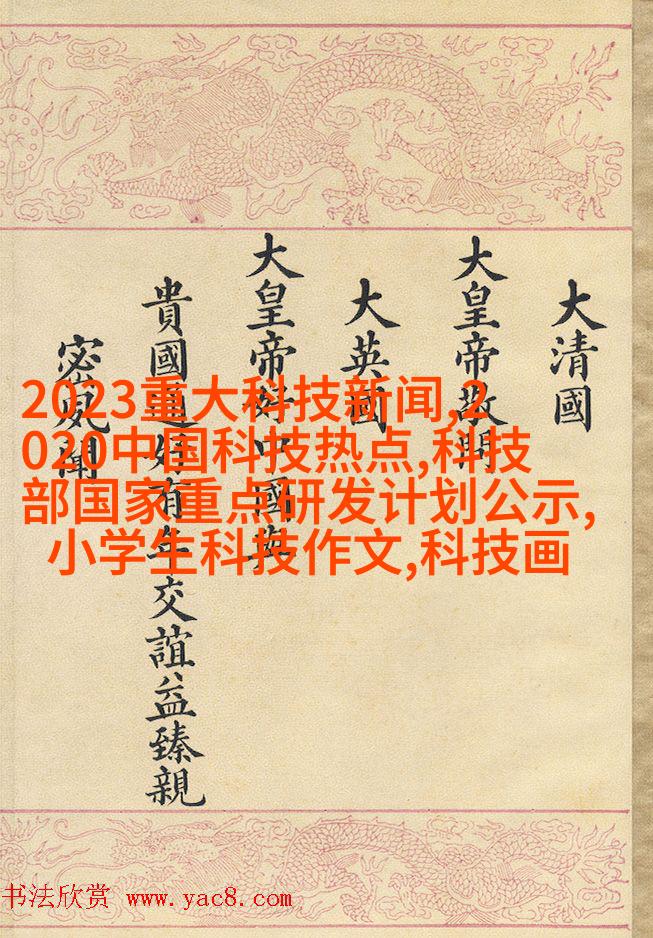 大清國
大皇帝敬問
大英國
大皇帝好中國與
貴國通好有年交誼益臻親
密夙聞
2023重大科技新闻,2
020中国科技热点,科技
部国家重点研发计划公示,
小学生科技作文,科技画
书法欣赏 www.yac8.com